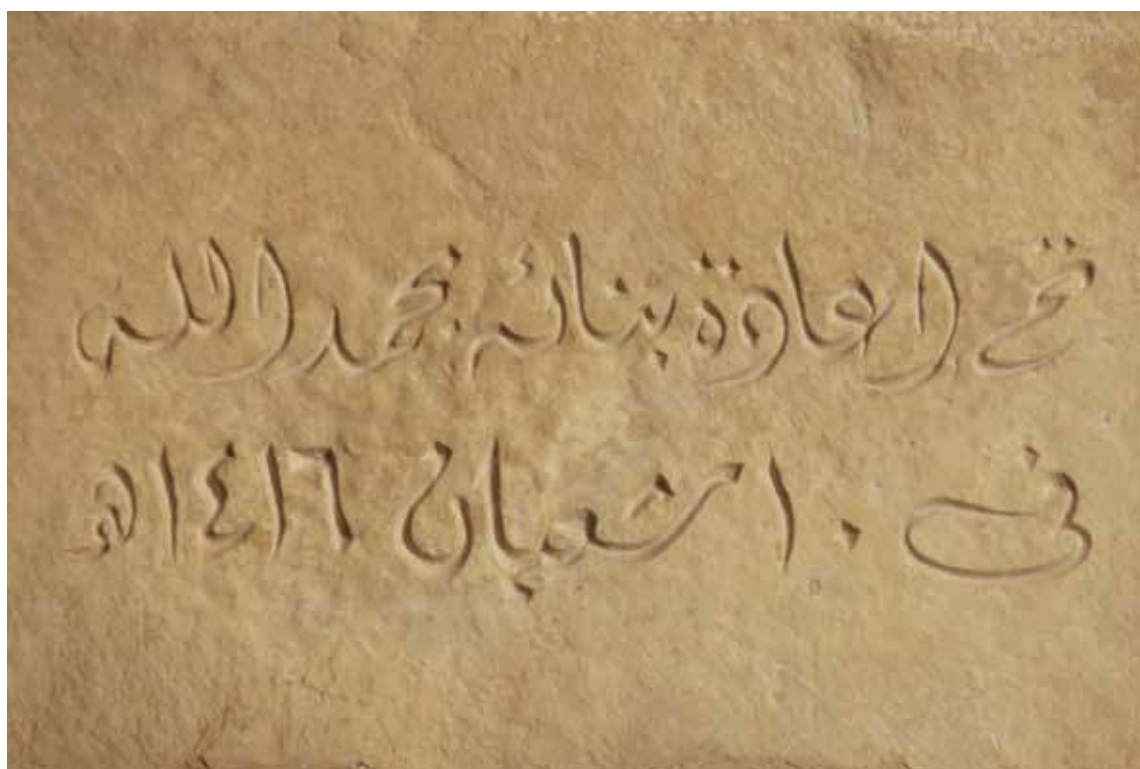 تم إعادة بنائه بحمد الله
في ١٠ شعبان ١٤١٦هـ